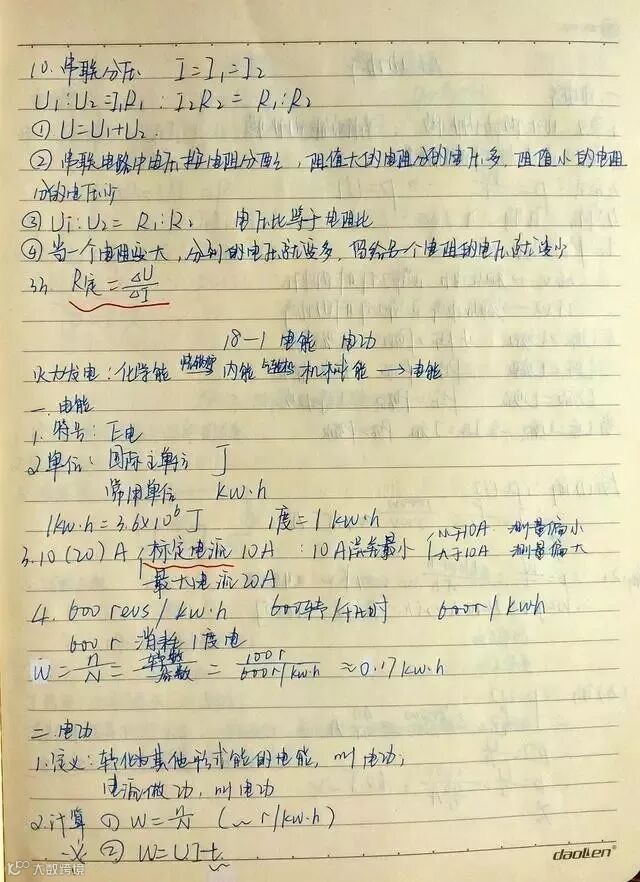 10. 串联分压 I=I₁=I₂
U₁:U₂=I₁R₁:I₂R₂=R₁:R₂
① U=U₁+U₂
② 串联电路中电压按电阻分配, 阻值大的电阻分的电压多, 阻值小的电阻
分的电压少
③ U₁:U₂=R₁:R₂ 电压比等于电阻比
④ 当一个电阻变大, 分到的电压就变多, 留给另一个电阻的电压就变少
R定=ΔU/ΔI
18-1 电能 电功
火力发电:化学能 内能 机械能→电能
一.电能
1.符号:E电
2.单位:国际主单位 J
常用单位 kw·h
1kw·h=3.6×10⁶J 1度=1kw·h
3.10(20)A 标定电流10A : 10A误差最小 小于10A 测量偏小
大于10A 测量偏大
最大电流20A
4. 600 revs/kw·h 600转/千瓦时 600r/kwh
600r 消耗1度电
W=n/N=转数/参数=100r/600r/kw·h≈0.17kw·h
二.电功
1.定义:转化为其他形式能的电能, 叫电功;
电流做功, 叫电功
2.计算 ① W=n/N (~r/kw·h)
② W=UIt
daolen
大数跨境